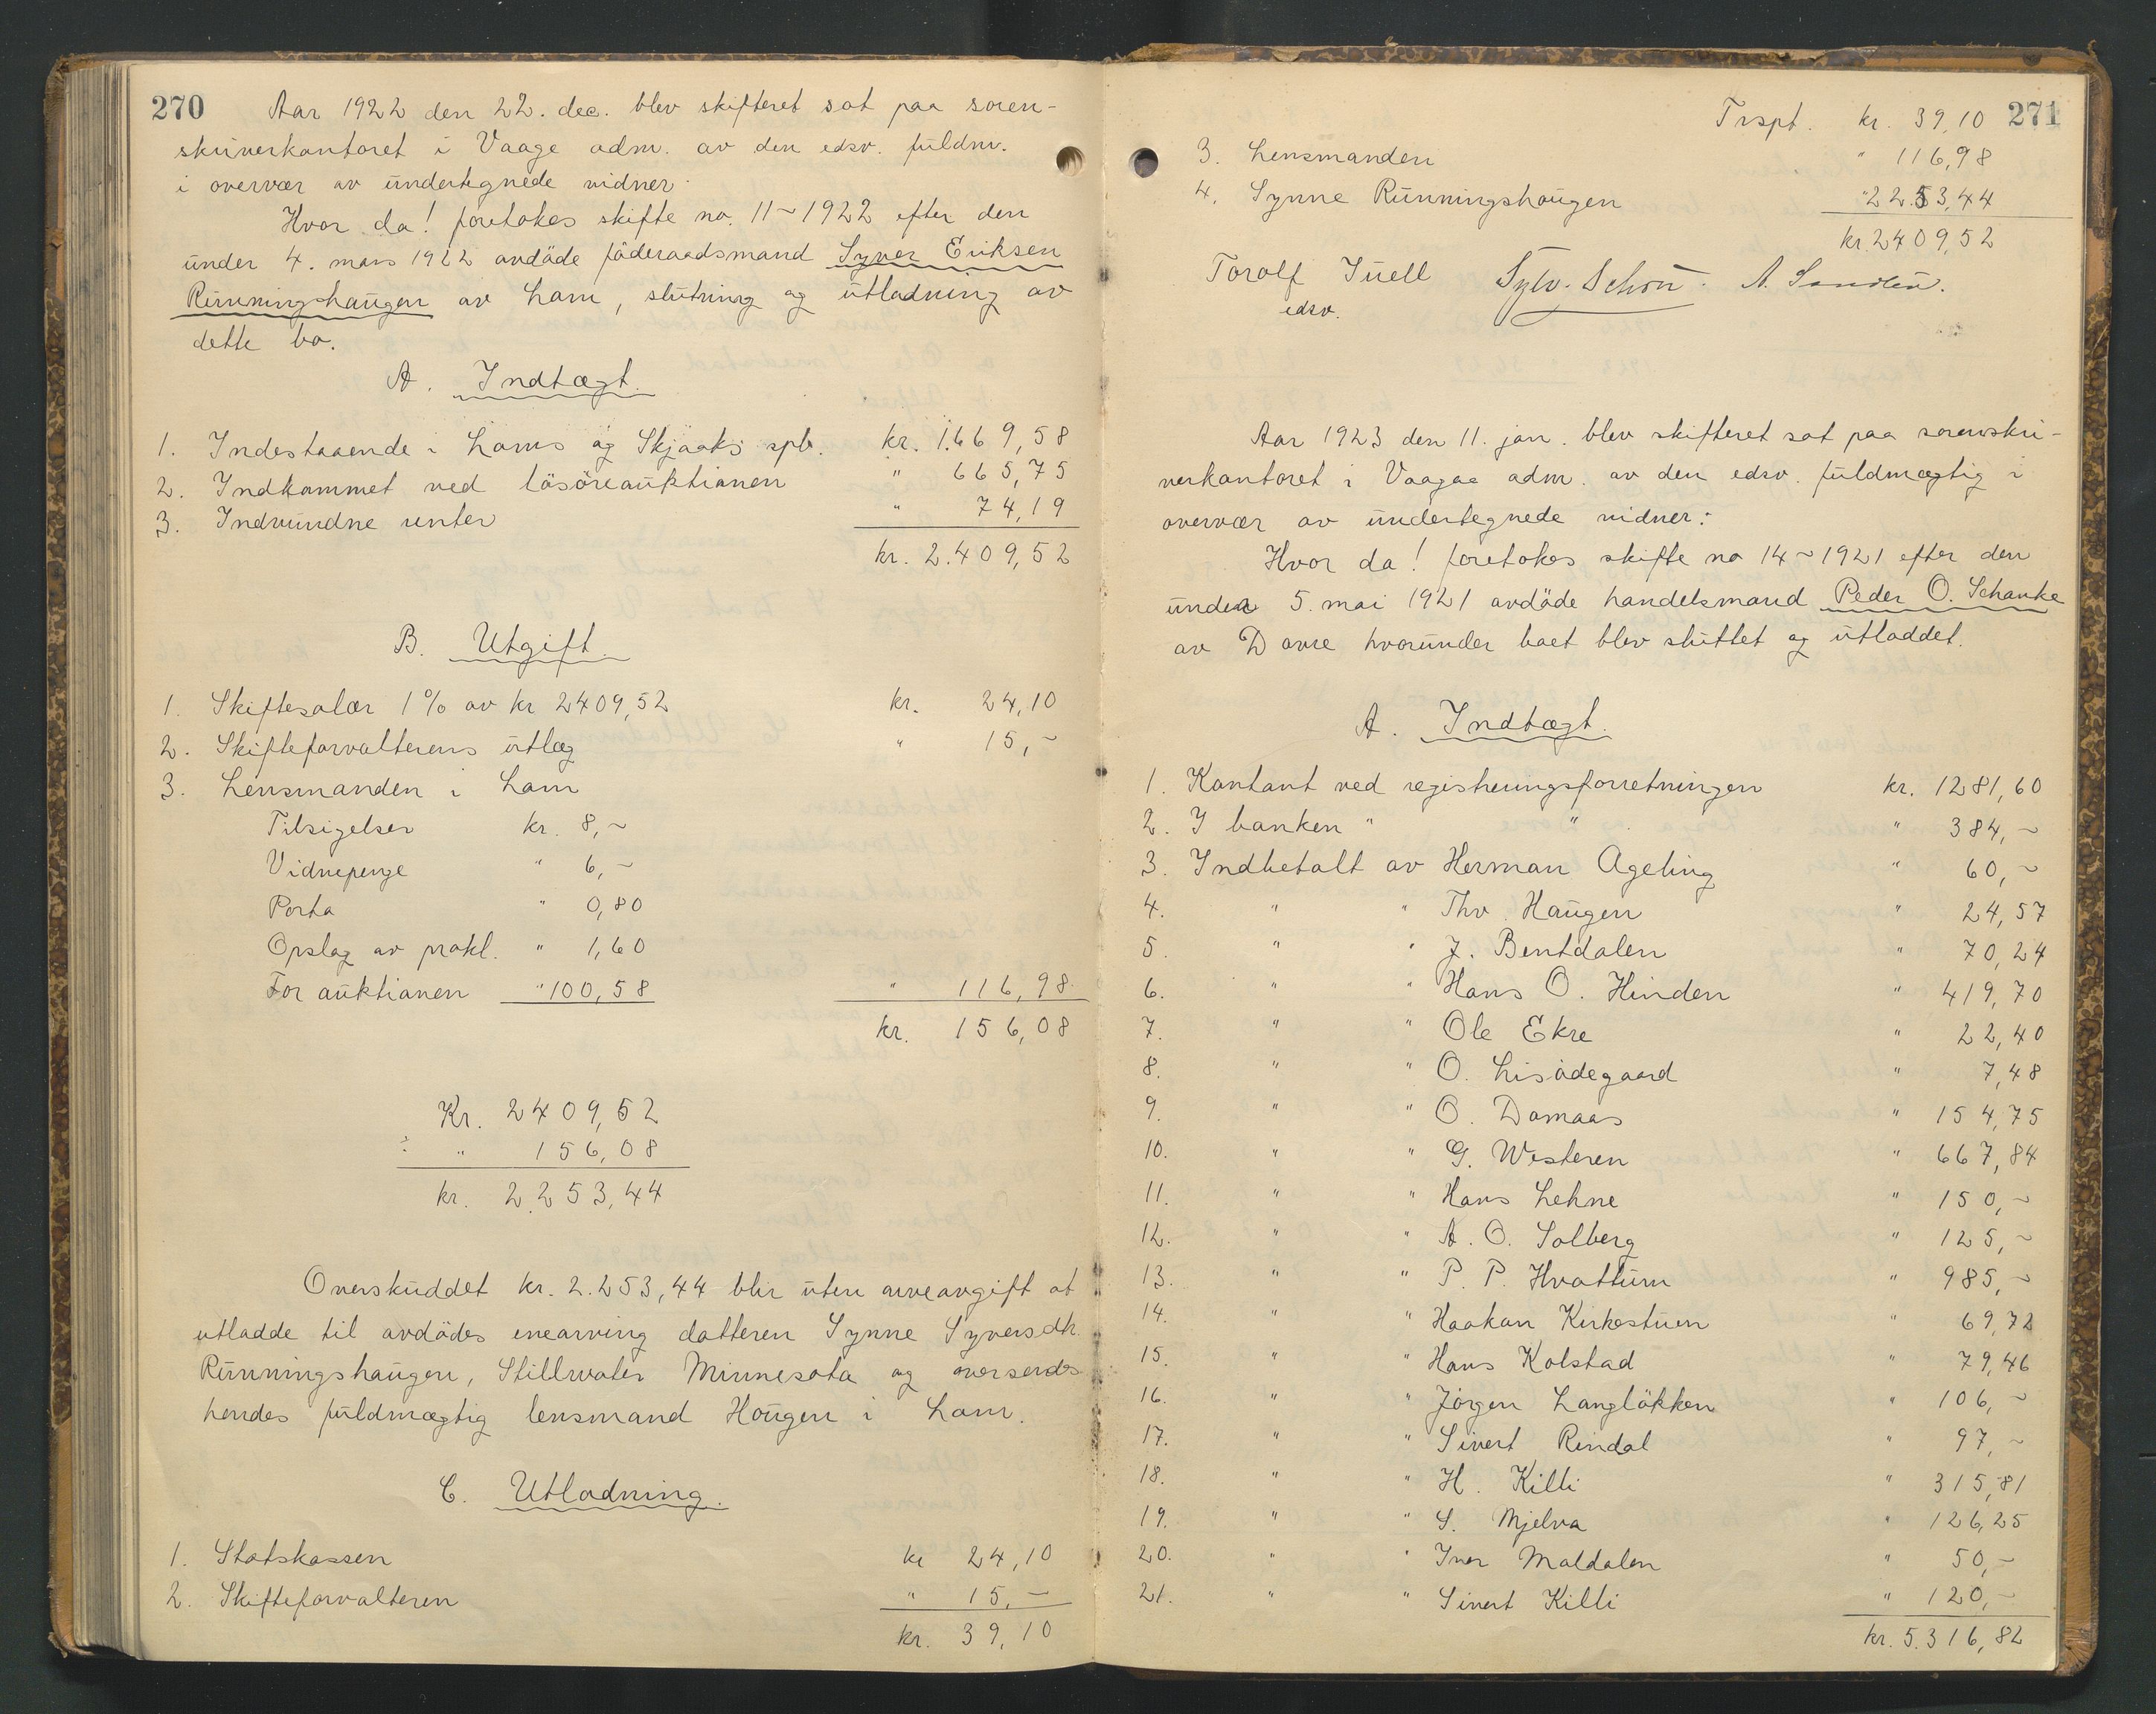 270 Aar 1922 den 22. dec. blev skifteret sat paa soren-
skriverkontoret i Vaage adm. av den edsv. fuldm.
i overvær av undertegnede vidner:
Hvor da! foretokes skifte no. 11 ~ 1922 efter den
under 4. mars 1922 avdöde föderaadsmand Syver Eriksen
Runningshaugen av Lom, slutning og utlodning av
dette bo.
A. Indtægt.
1. Indestaaende i Loms og Skjaaks spb. kr. 1.669,58
2. Indkommet ved lösöreauktionen " 665,75
3. Indvundne renter " 74,19
kr. 2.409,52
B. Utgift.
1. Skiftesalær 1% av kr 2409,52 kr. 24,10
2. Skifteforvalterens utlæg " 15,~
3. Lensmanden i Lom
Tilsigelser kr. 8,~
Vidnepenge " 6,~
Porto " 0,80
Opslag av prokl. " 1,60
For auktionen " 100,58 " 116,98
kr. 156,08
Kr. 2409,52
÷ " 156,08
kr. 2.253,44
Overskuddet kr. 2.253,44 blir uten arveavgift at
utlodde til avdödes enearving datteren Synne Syversdtr.
Runningshaugen, Stillwater Minnesota og oversendes
hendes fuldmægtig lensmand Hougen i Lom.
C. Utlodning.
1. Statskassen kr 24,10
2. Skifteforvalteren " 15,~
kr. 39,10
Trspt. kr. 39,10 271
3. Lensmanden " 116,98
4. Synne Runningshaugen " 2253,44
kr. 2409,52
Torolf Juell Sylv. Schou. A. Sandlie.
edsv.
Aar 1923 den 11. jan. blev skifteret sat paa sorenskri-
verkontoret i Vaagaa adm. av den edsv. fuldmægtig i
overvær av undertegnede vidner:
Hvor da! foretokes skifte no 14 ~ 1921 efter den
under 5. mai 1921 avdöde handelsmand Peder O. Schanke
av Dovre hvorunder boet blev sluttet og utloddet.
A. Indtægt.
1. Kontant ved registreringsforretningen kr. 1281,60
2. I banken " " " 384,~
3. Indbetalt av Herman Ageling " 60,~
4. " " Thv. Haugen " 24,57
5. " " J. Bentdalen " 70,24
6. " " Hans O. Hinden " 419,70
7. " " Ole Ekre " 22,40
8. " " O. Lisödegaard " 7,48
9. " " O. Domaas " 154,75
10. " " G. Westeren " 667,84
11. " " Hans Lehne " 150,~
12. " " A. O. Solberg " 125,~
13. " " P. P. Hvattum " 985,~
14. " " Haakon Kirkestuen " 69,72
15. " " Hans Kolstad " 79,46
16. " " Jörgen Langlökken " 106,~
17. " " Sivert Rindal " 97,~
18. " " H. Killi " 315,81
19. " " S. Mjelva " 126,25
20. " " Iver Moldalen " 50,~
21. " " Sivert Killi " 120,~
kr. 5.316,82